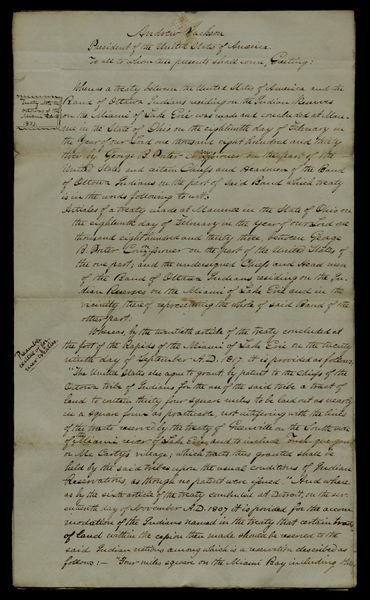 Andrew Jackson
President of the United States of America
To all to whom these presents shall come, Greeting:
Whereas a treaty between the United States of America and the
Band of Ottowa Indians residing on the Indian Reserves
on the Miami of Lake Erie was made and concluded at Mau-
mee in the State of Ohio on the eighteenth day of February in
the Year of our Lord one thousand eight hundred and thirty
three by George B. Porter Commissioner on the part of the
United States and certain Chiefs and Headmen of the Band
of Ottowa Indians on the part of said Band which treaty
is in the words following to wit:
Articles of a treaty made at Maumee in the State of Ohio on
the eighteenth day of February in the year of our Lord one
thousand eight hundred and thirty three, between George
B. Porter Commissioner on the part of the United States of
the one part, and the undersigned Chiefs and Head men
of the Band of Ottowa Indians residing on the In-
dian Reserves on the Miami of Lake Erie and in the
vicinity thereof representing the whole of said Band of the
other part.
Whereas, by the twentieth article of the treaty concluded at
the foot of the Rapids of the Miami of Lake Erie on the twenty
ninth day of September A.D. 1817 it is provided as follows,
"The United States also agree to grant, by patent to the Chiefs of the
Ottowa tribe of Indians for the use of the said tribe a tract of
land to contain thirty four square miles to be laid out as nearly
in a square form as practicable, not interfering with the lines
of the tracts reserved by the treaty of Greenville on the South side
of Miami river of Lake Erie, and to include
or McCarty's village; which tract thus granted shall be
held by the said tribe upon the usual conditions of Indian
Reservations, as though no patent were issued." And where
as by the sixth article of the treaty concluded at Detroit, on the sev-
enteenth day of November A.D. 1807 it is provided for the accom
modation of the Indians named in the treaty that certain tracts
of land within the cession then made should be reserved to the
said Indian nations among which is a reservation described as
follows:- "Four miles square on the Miami Bay including the